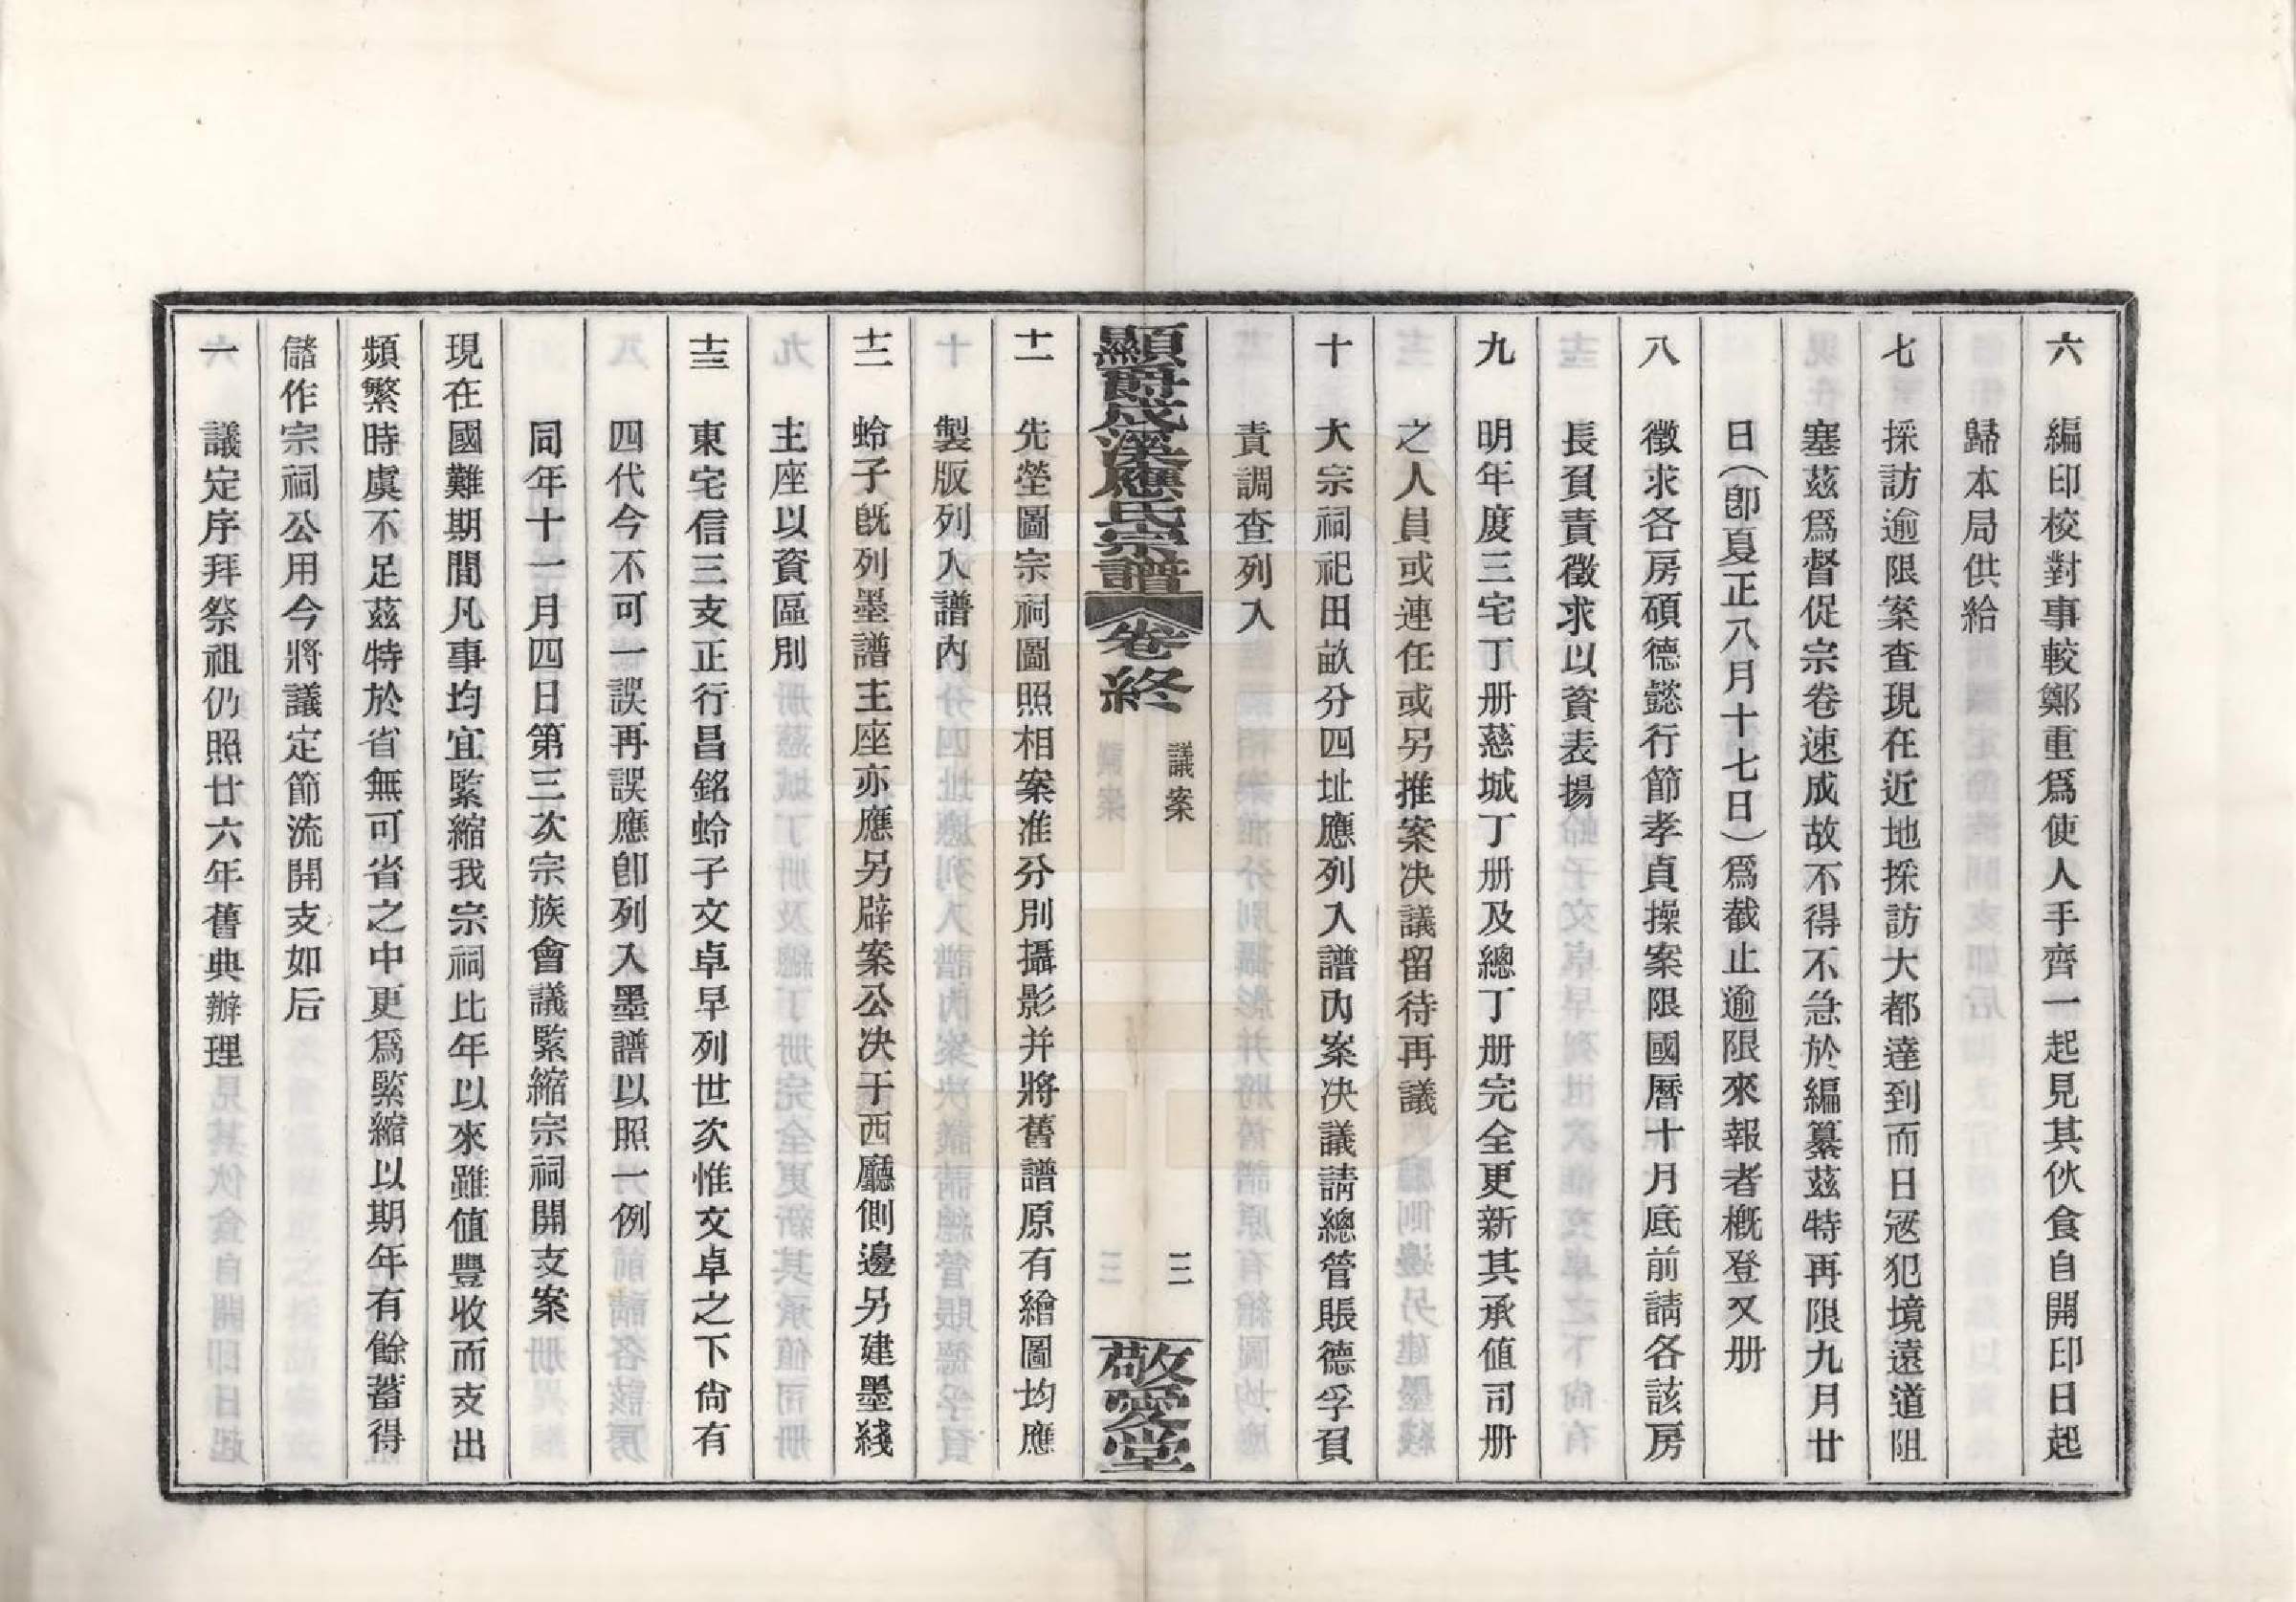 六　編印校對事較鄭重爲使人手齊一起見其伙食自開印日起
歸本局供給
七　採訪逾限案查現在近地採訪大都達到而日寇犯境遠道阻
塞茲爲督促宗卷速成故不得不急於編纂茲特再限九月廿
日（卽夏正八月十七日）爲截止逾限來報者槪登又册
八　徵求各房碩德懿行節孝貞操案限國曆十月底前請各該房
長負責徵求以資表揚
九　明年度三宅丁册慈城丁册及總丁册完全更新其承值司册
之人員或連任或另推案決議留待再議
十　大宗祠祀田畝分四址應列入譜內案決議請總管賬德孚負
責調查列入
顯爵成溪應氏宗譜
卷終
議案
三
敬愛堂
十一　先塋圖宗祠圖照相案准分別攝影并將舊譜原有繪圖均應
製版列入譜內
十二　蛉子旣列墨譜主座亦應另辟案公決于西廳側邊另建墨綫
主座以資區別
十三　東宅信三支正行昌銘蛉子文卓早列世次惟文卓之下尙有
四代今不可一誤再誤應卽列入墨譜以照一例
同年十一月四日第三次宗族會議緊縮宗祠開支案
現在國難期間凡事均宜緊縮我宗祠比年以來雖值豐收而支出
頻繁時虞不足茲特於省無可省之中更爲緊縮以期年有餘蓄得
儲作宗祠公用今將議定節流開支如后
一　議定序拜祭祖仍照廿六年舊典辦理